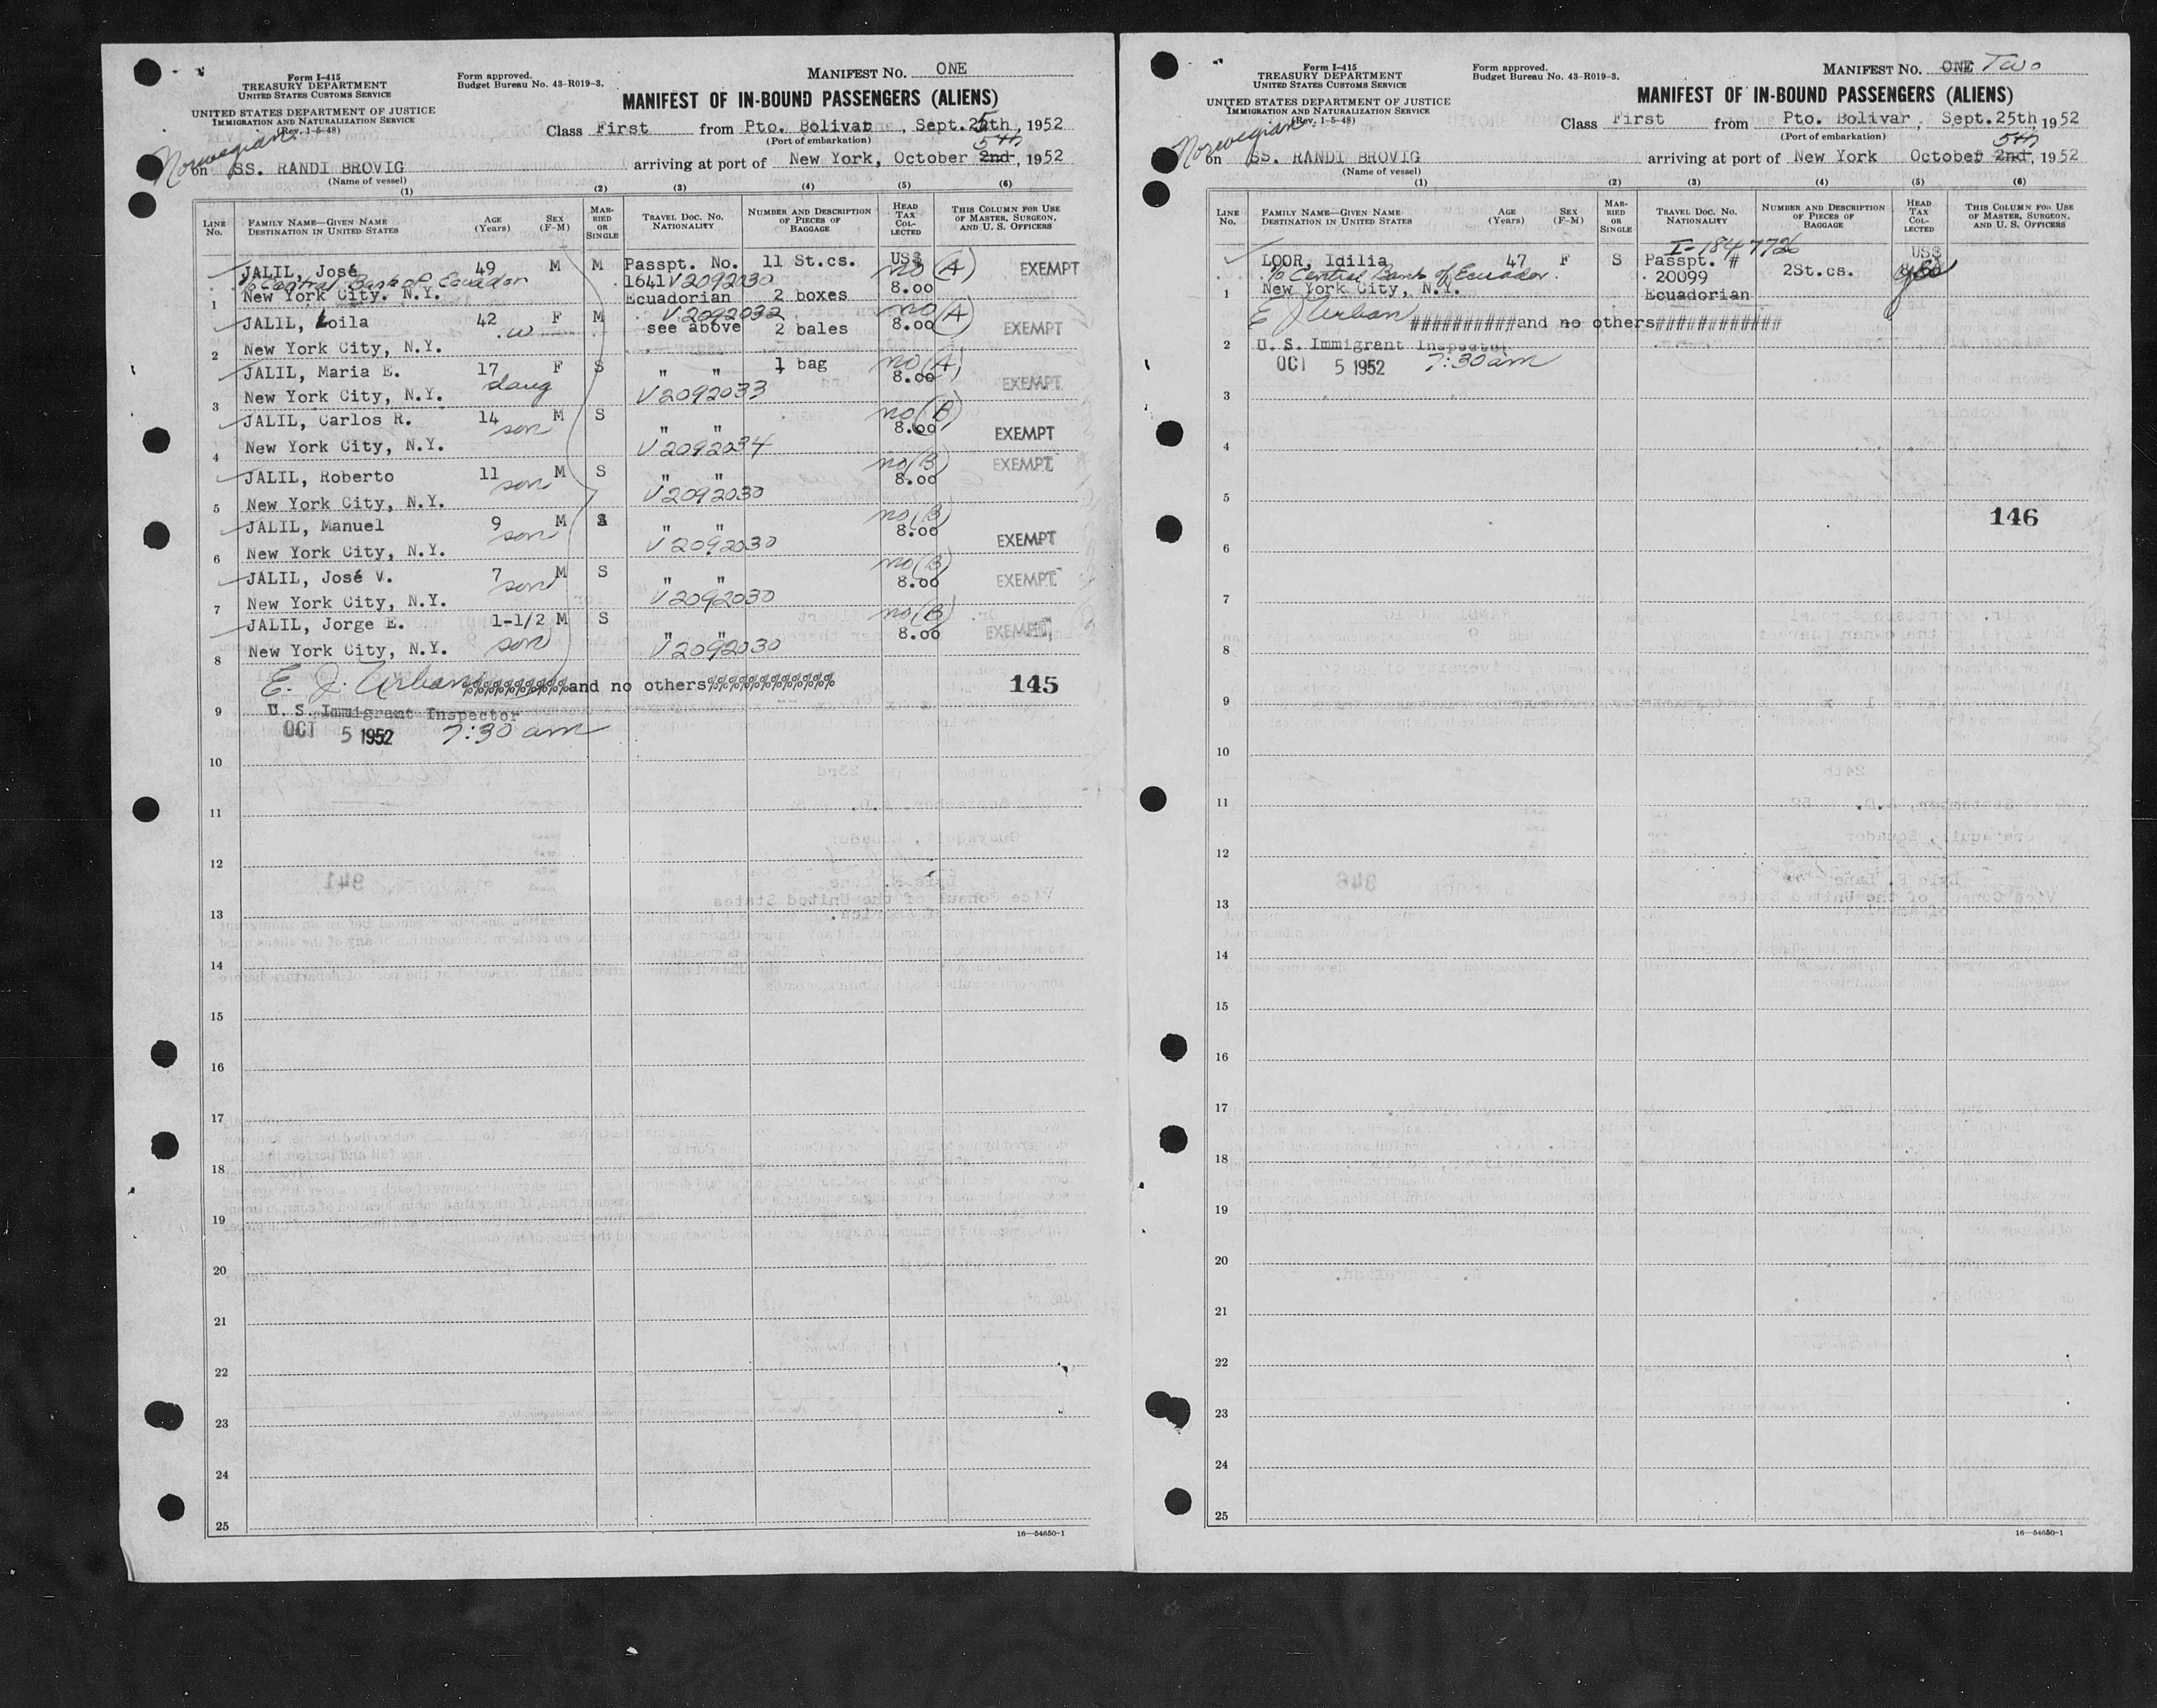 Form I-415
TREASURY DEPARTMENT
UNITED STATES CUSTOMS SERVICE
UNITED STATES DEPARTMENT OF JUSTICE
IMMIGRATION AND NATURALIZATION SERVICE
(Rev. 1-5-48)
Form approved.
Budget Bureau No. 43-R019-3.
MANIFEST No. ONE
MANIFEST OF IN-BOUND PASSENGERS (ALIENS)
Class First from Pto. Bolivar, Sept. 25th, 1952
(Port of embarkation)
Norwegian
on SS. RANDI BROVIG arriving at port of New York, October 2nd 5th, 1952
(Name of vessel)
(1) (2) (3) (4) (5) (6)
LINE No. FAMILY NAME—GIVEN NAME DESTINATION IN UNITED STATES AGE (Years) SEX (F-M) MARRIED OR SINGLE TRAVEL DOC. No. NATIONALITY NUMBER AND DESCRIPTION OF PIECES OF BAGGAGE HEAD TAX COLLECTED THIS COLUMN FOR USE OF MASTER, SURGEON, AND U. S. OFFICERS
JALIL, José 49 M M Passpt. No. 11 St.cs. US$ no (A) EXEMPT
% Central Bank of Ecuador 1641 V2092030 8.00
1 New York City. N.Y. Ecuadorian 2 boxes
JALIL, Loila 42 w F M V2092032 see above 2 bales no (A) 8.00 EXEMPT
2 New York City, N.Y.
JALIL, Maria E. 17 daug F S " " 1 bag no (A) 8.00 EXEMPT
3 New York City, N.Y. V2092033
JALIL, Carlos R. 14 son M S " " no (B) 8.00 EXEMPT
4 New York City, N.Y. V2092034
JALIL, Roberto 11 son M S " " no (B) 8.00 EXEMPT
5 New York City, N.Y. V2092030
JALIL, Manuel 9 son M S " " no (B) 8.00 EXEMPT
6 New York City, N.Y. V2092030
JALIL, José V. 7 son M S " " no (B) 8.00 EXEMPT
7 New York City, N.Y. V2092030
JALIL, Jorge E. 1-1/2 son M S " " no (B) 8.00 EXEMPT
8 New York City, N.Y. V2092030
E. J. Urban %%%%%%%%%%and no others%%%%%%%%%%%% 145
9 U. S. Immigrant Inspector
OCT 5 1952 7:30 am
10
11
12
13
14
15
16
17
18
19
20
21
22
23
24
25
16—54650-1
Form I-415
TREASURY DEPARTMENT
UNITED STATES CUSTOMS SERVICE
UNITED STATES DEPARTMENT OF JUSTICE
IMMIGRATION AND NATURALIZATION SERVICE
(Rev. 1-5-48)
Form approved.
Budget Bureau No. 43-R019-3.
MANIFEST No. ONE Two
MANIFEST OF IN-BOUND PASSENGERS (ALIENS)
Class First from Pto. Bolivar, Sept.25th, 1952
(Port of embarkation)
Norwegian
on SS. RANDI BROVIG arriving at port of New York October 2nd 5th, 1952
(Name of vessel)
(1) (2) (3) (4) (5) (6)
LINE No. FAMILY NAME—GIVEN NAME DESTINATION IN UNITED STATES AGE (Years) SEX (F-M) MARRIED OR SINGLE TRAVEL DOC. No. NATIONALITY NUMBER AND DESCRIPTION OF PIECES OF BAGGAGE HEAD TAX COLLECTED THIS COLUMN FOR USE OF MASTER, SURGEON, AND U. S. OFFICERS
I-184772
LOOR, Idilia 47 F S Passpt. # US$
% Central Bank of Ecuador. 20099 2St.cs.
1 New York City, N.Y. Ecuadorian
E J Urban ##########and no others############
2 U. S. Immigrant Inspector
OCT 5 1952 7:30 am
3
4
5
146
6
7
8
9
10
11
12
13
14
15
16
17
18
19
20
21
22
23
24
25
16—54650-1